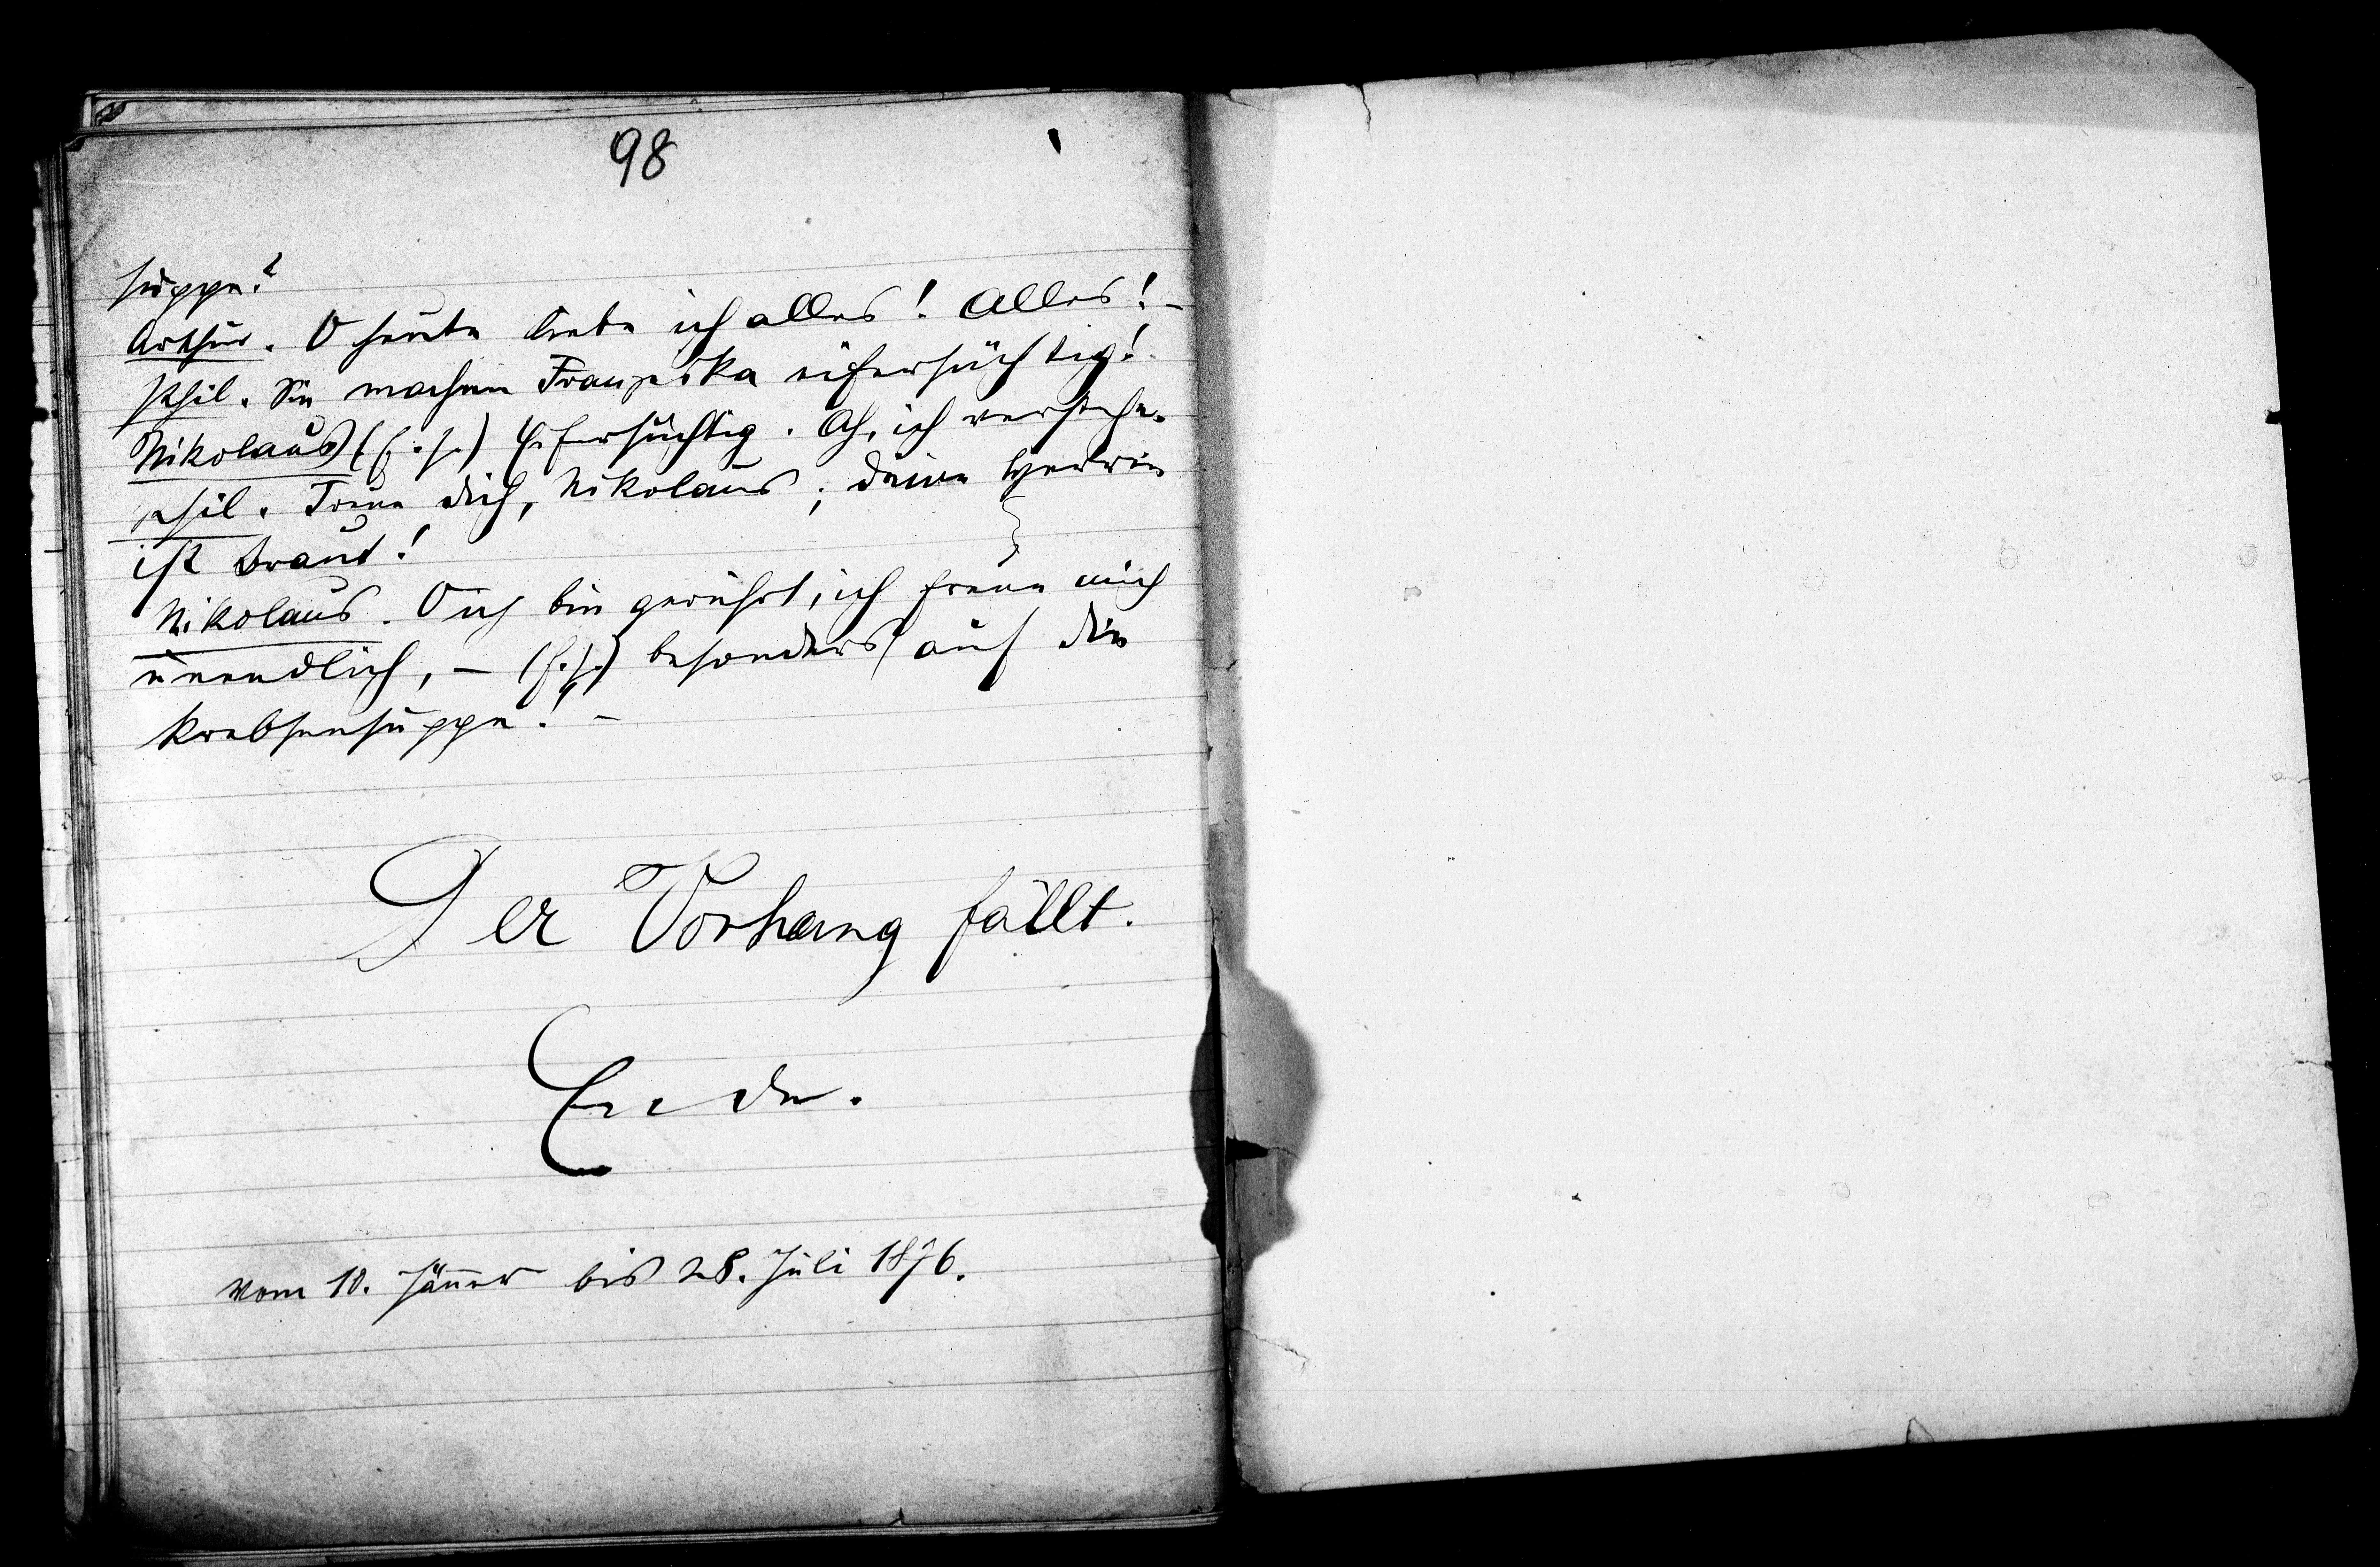 98
suppe?
Arthur. O heute liebe ich alles! Alles! –
Phil. Sie machen Franziska eifersüchtig!
Nikolaus (f. s.) Eifersüchtig. Ah, ich verstehe.
Phil. Freue dich, Nikolaus; deine Herrin
ist Braut!
Nikolaus. O ich bin gerührt, ich freue mich
unendlich, – (f. s.) besonders auf die
Krebsensuppe! –
Der Vorhang fällt.
Ende.
Vom 10. Jänner bis 28. Juli 1876.